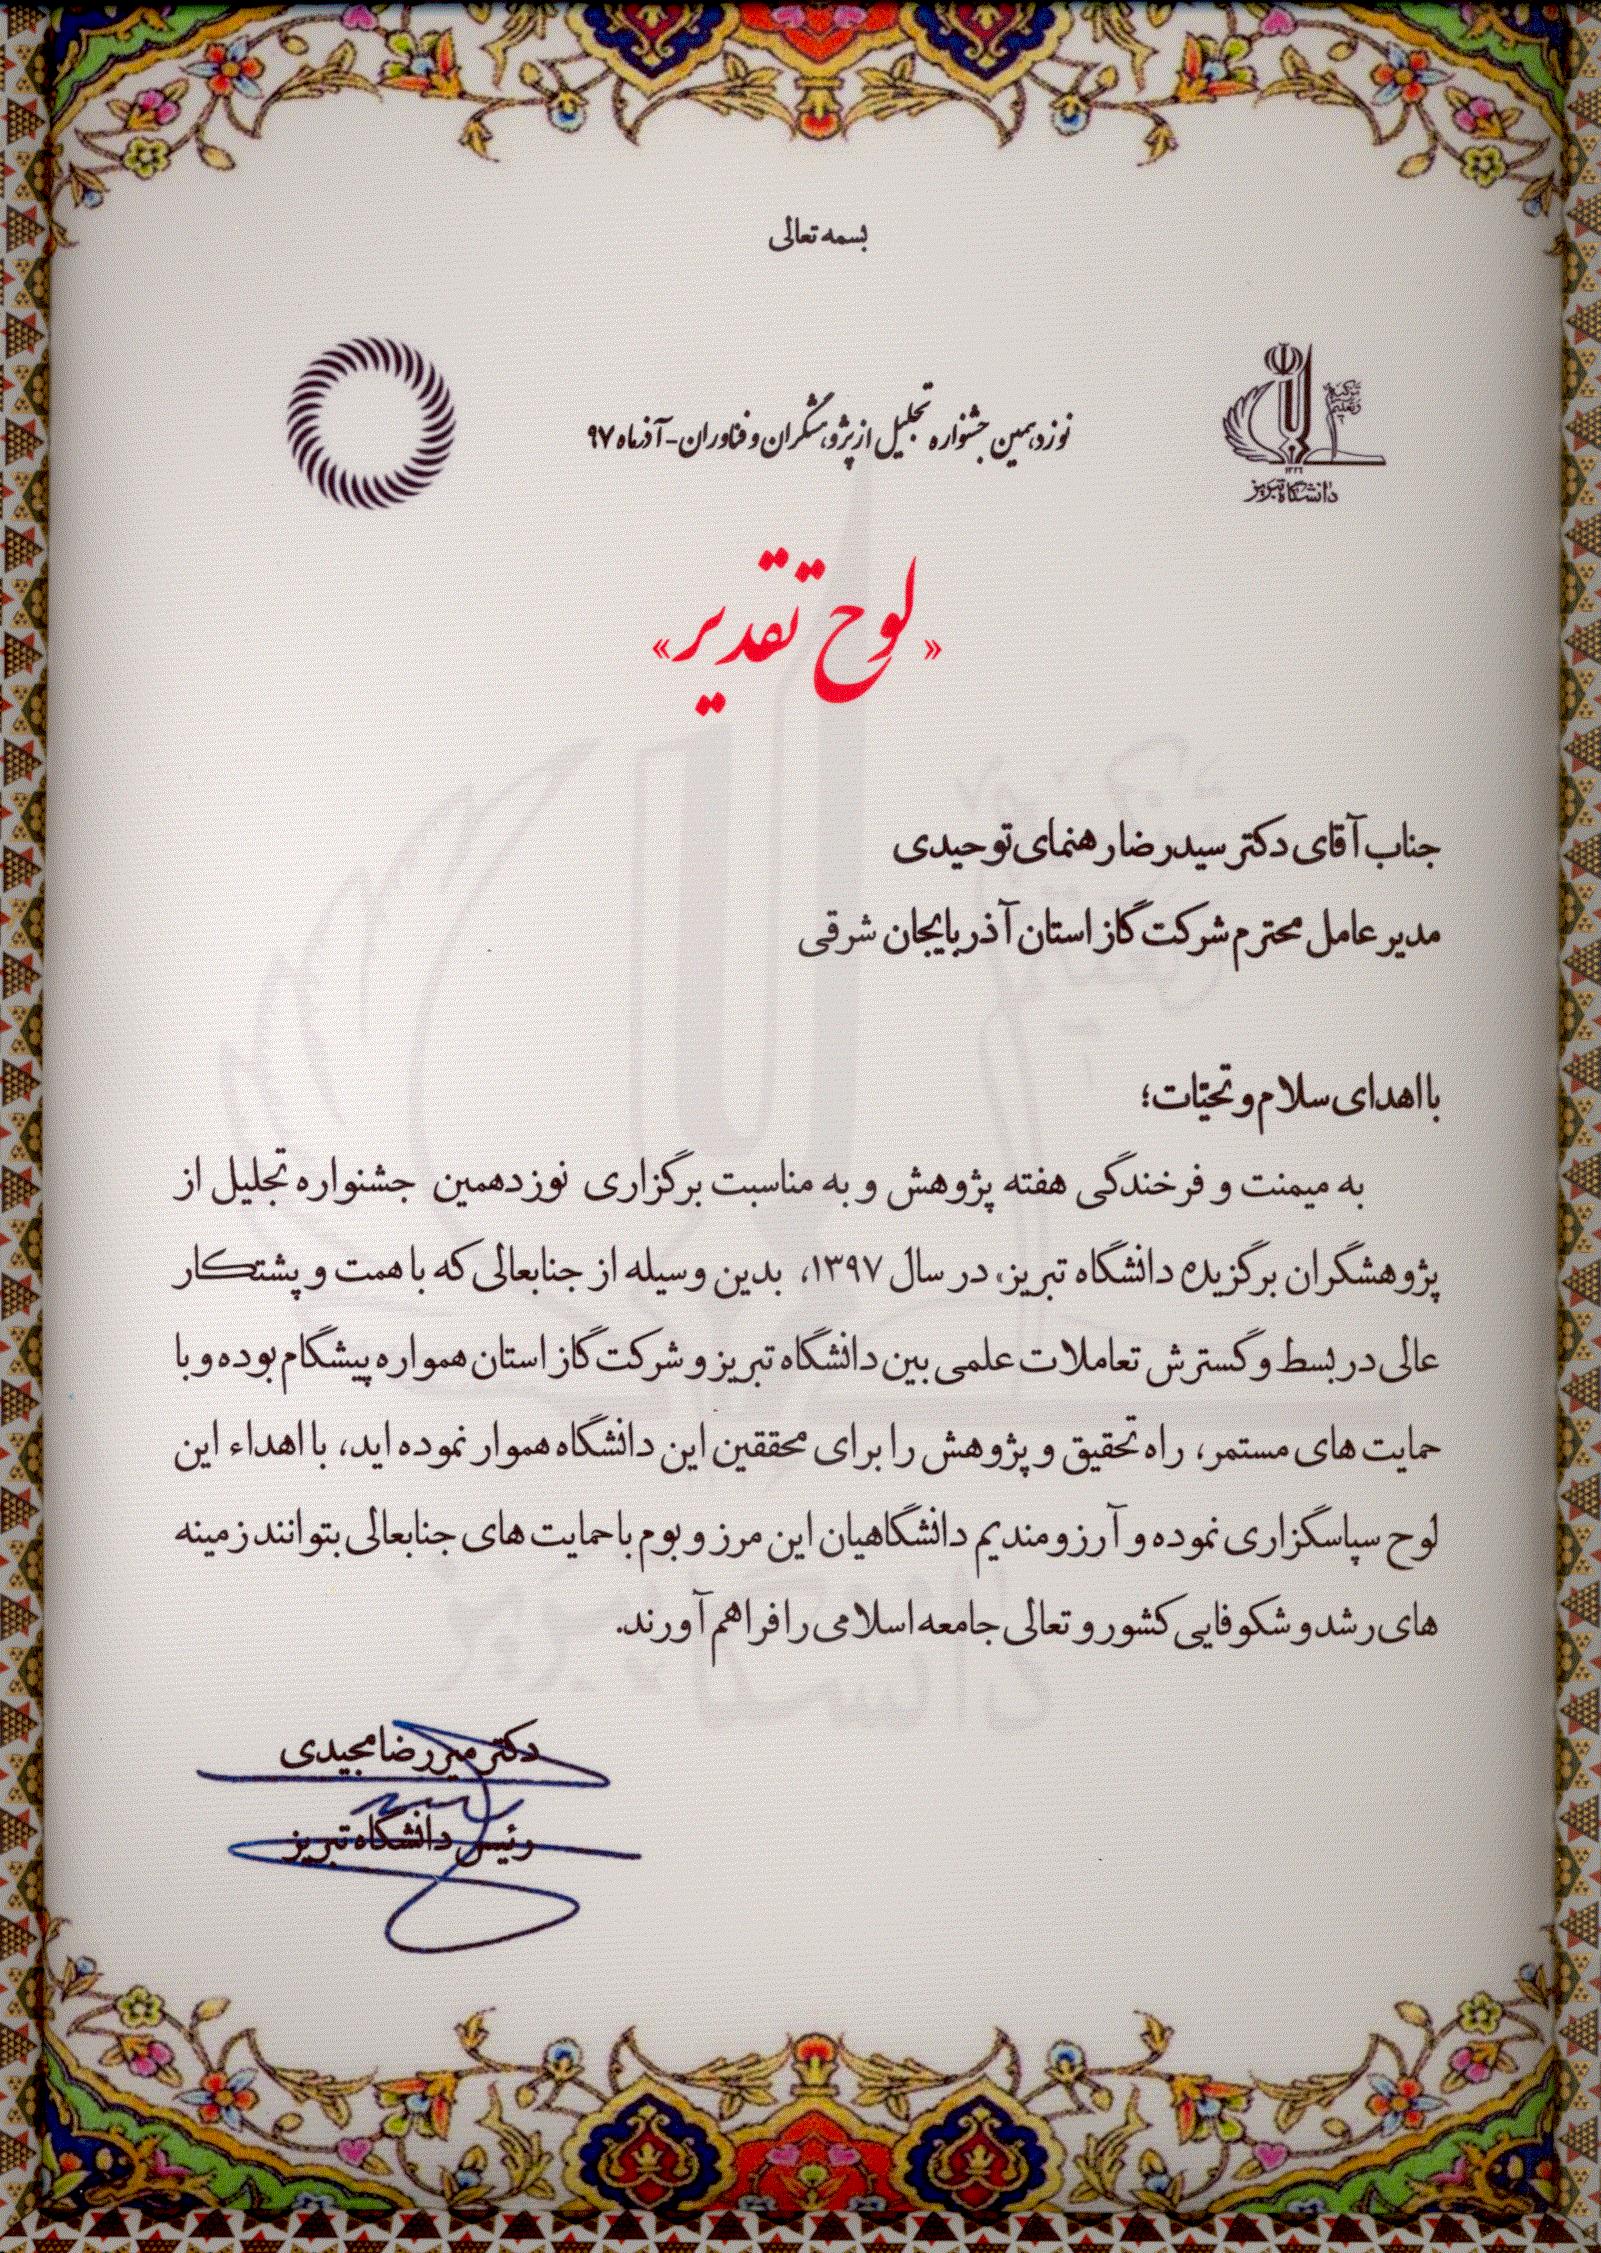 بسمه تعالی
تزکیه
و تعلیم
۱۳۲۶
دانشگاه تبریز
نوزدهمین جشنواره تجلیل از پژوهشگران و فناوران - آذرماه ۹۷
«لوح تقدیر»
جناب آقای دکتر سیدرضا رهنمای توحیدی
مدیر عامل محترم شرکت گاز استان آذربایجان شرقی
با اهدای سلام و تحیّات؛
به میمنت و فرخندگی هفته پژوهش و به مناسبت برگزاری نوزدهمین جشنواره تجلیل از
پژوهشگران برگزیده دانشگاه تبریز، در سال ۱۳۹۷، بدین وسیله از جنابعالی که با همت و پشتکار
عالی در بسط و گسترش تعاملات علمی بین دانشگاه تبریز و شرکت گاز استان همواره پیشگام بوده و با
حمایت های مستمر، راه تحقیق و پژوهش را برای محققین این دانشگاه هموار نموده اید، با اهداء این
لوح سپاسگزاری نموده و آرزومندیم دانشگاهیان این مرز و بوم با حمایت های جنابعالی بتوانند زمینه
های رشد و شکوفایی کشور و تعالی جامعه اسلامی را فراهم آورند.
دکتر میررضا مجیدی
رئیس دانشگاه تبریز